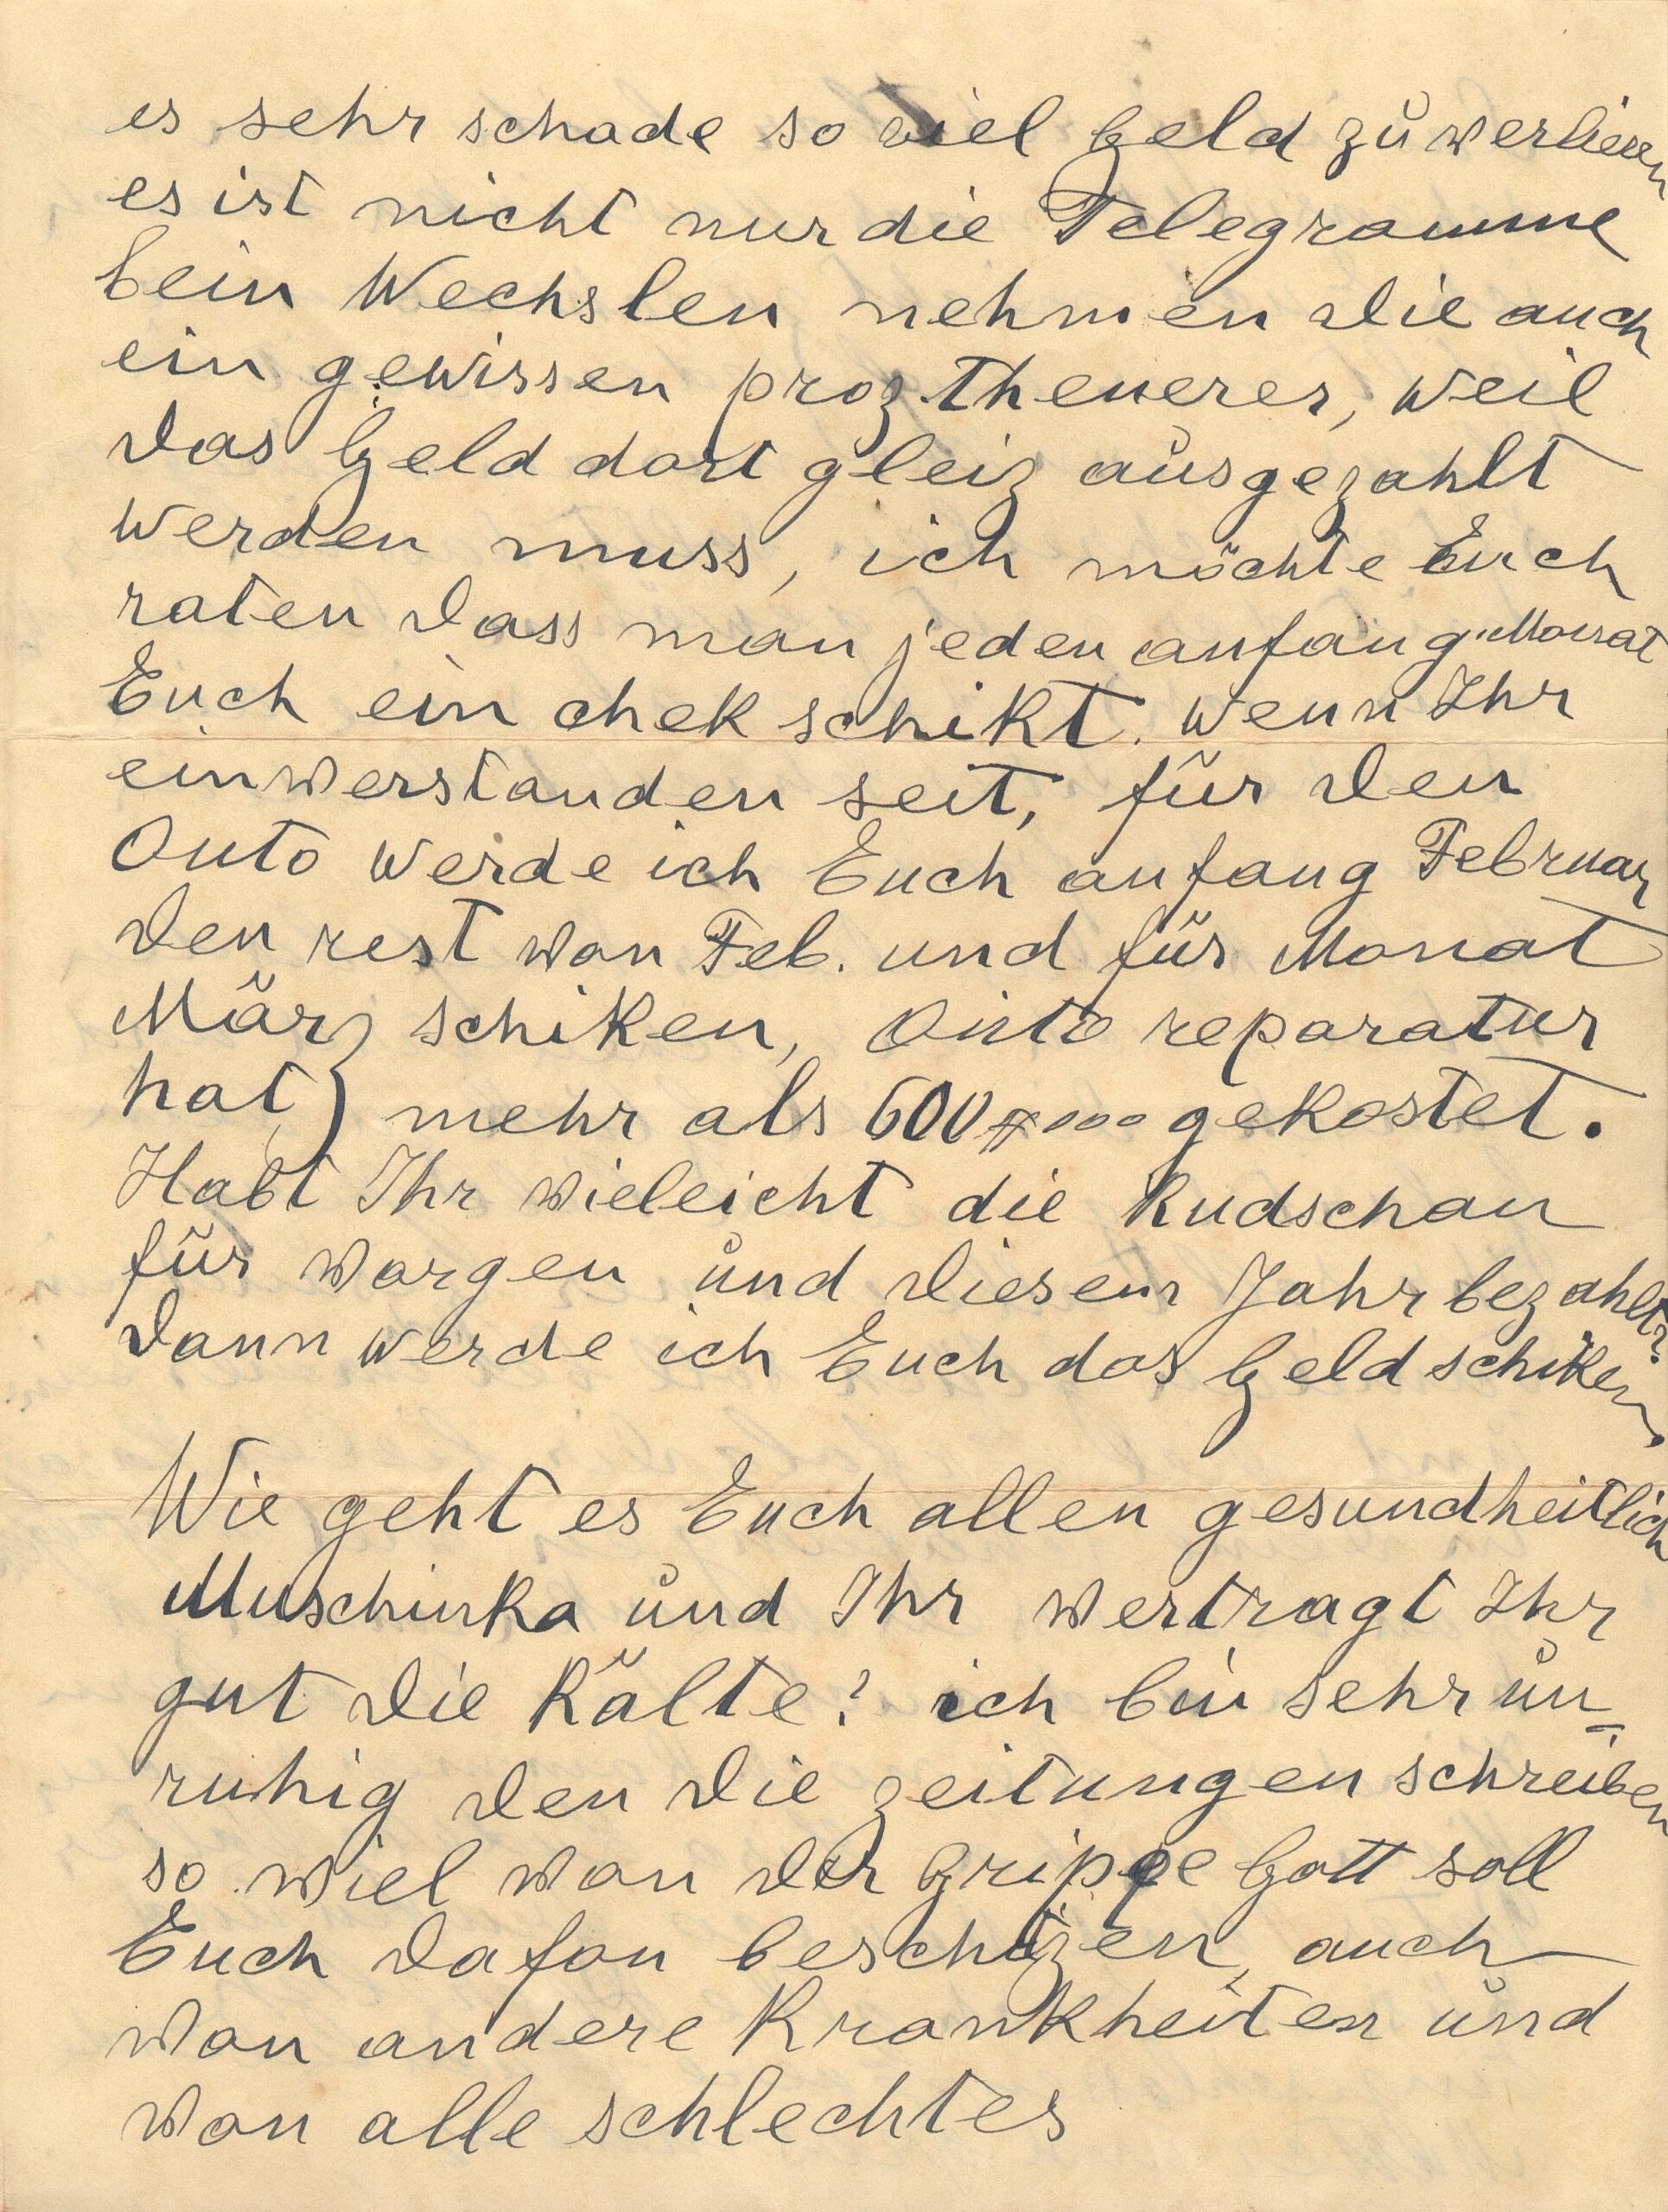 es sehr schade so viel Geld zu werlieren
es ist nicht nur die Telegramme
bein Wechslen nehmen die auch
ein gewissen proz. theuerer, weil
das Geld dort gleiz ausgezahlt
werden muss, ich möchte Euch
raten dass man jeden anfang Monat
Euch ein chek schikt. wenn Ihr
einwerstanden seit, für den
Outo werde ich Euch anfang Februar
den rest won Feb. und für Monat
März schiken, Outo reparatur
hat mehr als 600 gekostet.
Habt Ihr wieleicht die Rudschau
für worgen und diesem Jahr bezahlt?
dann werde ich Euch das Geld schiken.
Wie geht es Euch allen gesundheitlich
Muschinka und Ihr wertragt Ihr
gut die Kälte? ich bin sehr un-
ruhig den die zeitungen schreiben
so wiel won der Grippe Gott soll
Euch dafon beschüzen, auch
won andere Krankheiten und
won alle schlechtes